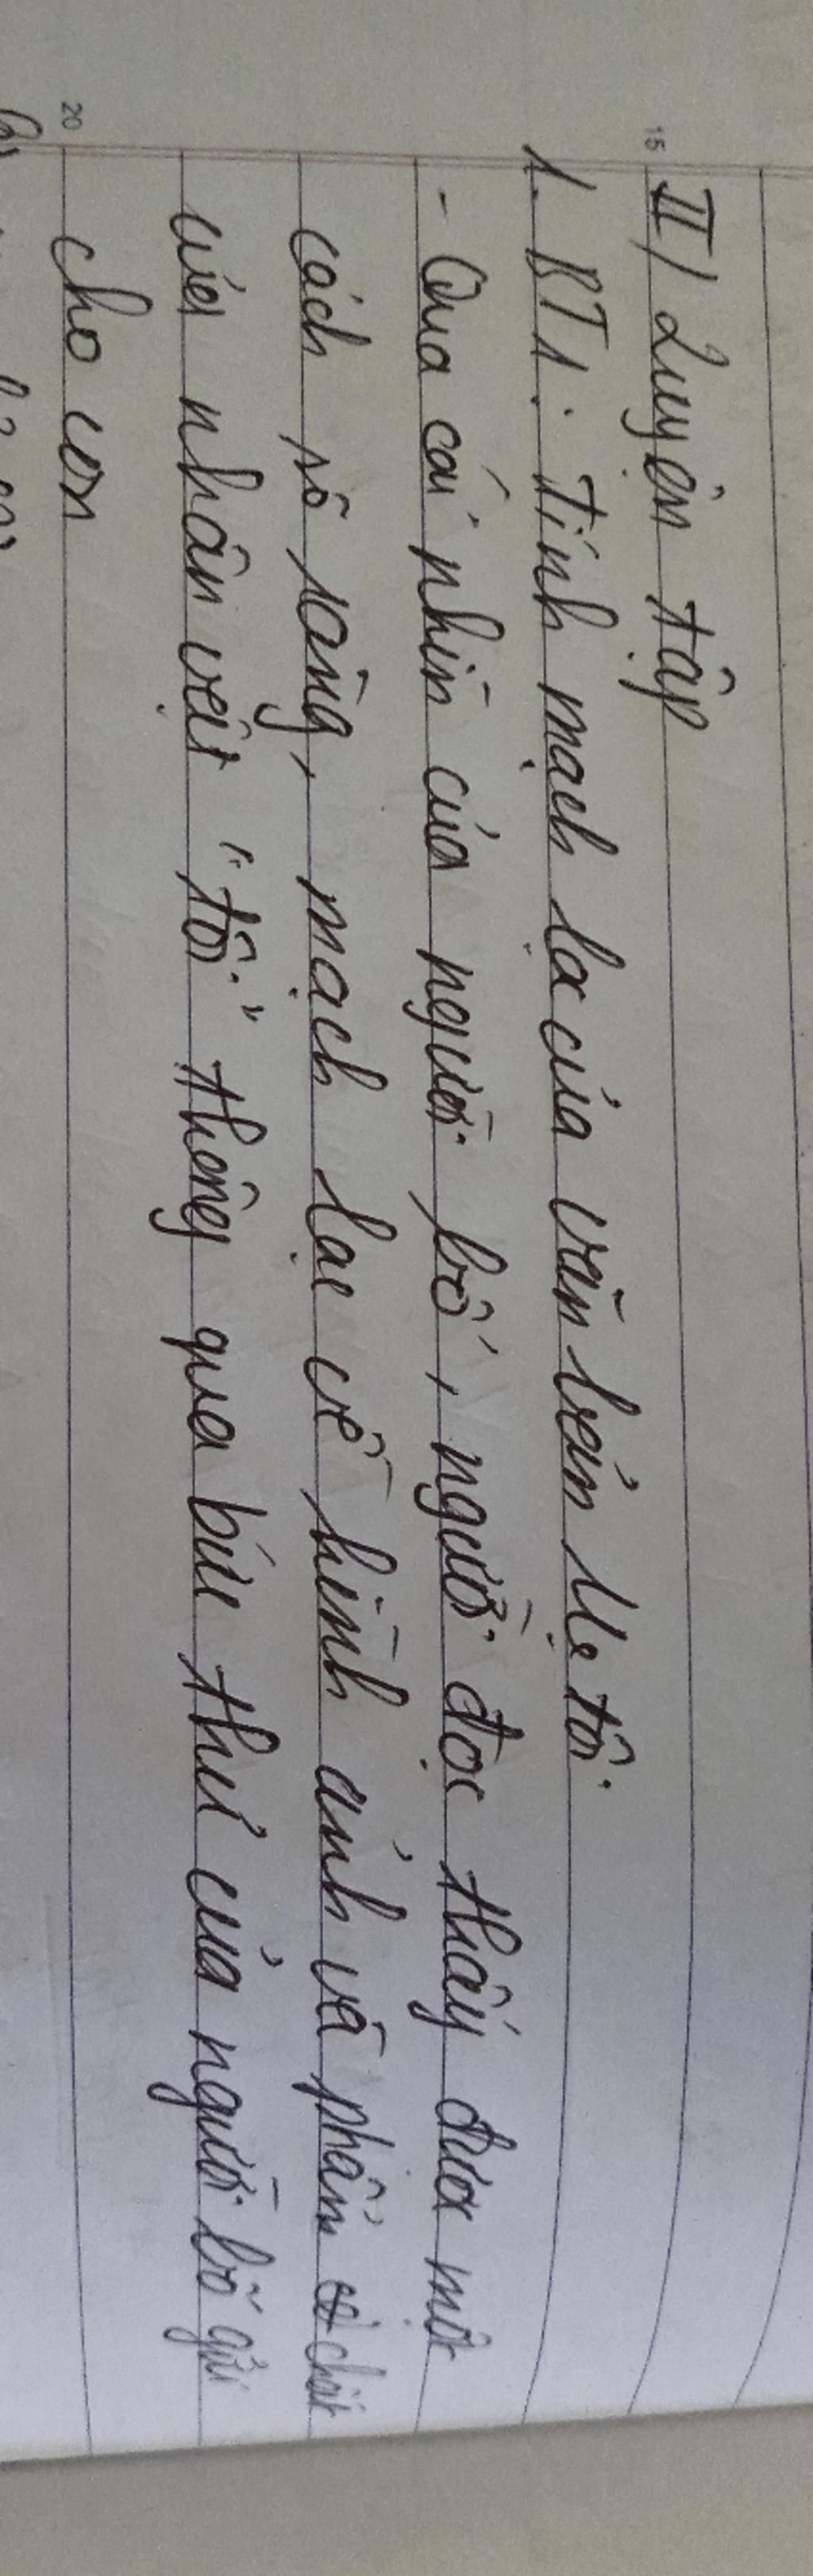 15
II/ Luyện tập
1. BT1: Tính mạch lạc của văn bản Mẹ tôi
- Qua cái nhìn của người bố, người đọc thấy được một
cách rõ ràng, mạch lạc về hình ảnh và phẩm chất
của nhân vật "tôi" thông qua bức thư của người bố gửi
20
cho con